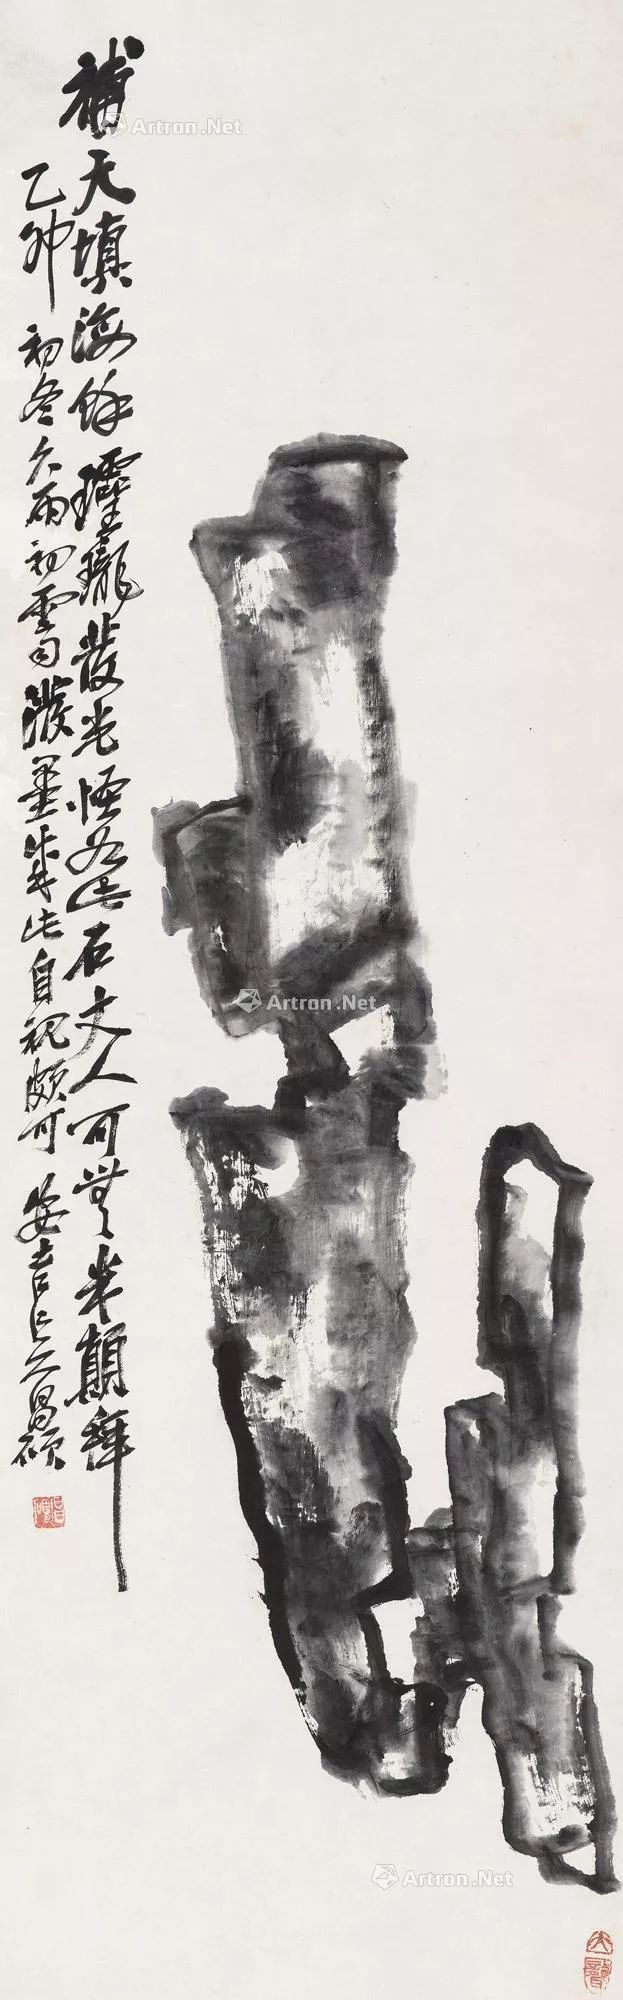 補天填海餘瓏發光怪爲此石丈人可無米顛拜
乙卯初冬久雨初霽潑墨成此自視頗可 安吉吳昌碩
Artron.Net
Artron.Net
Artron.Net